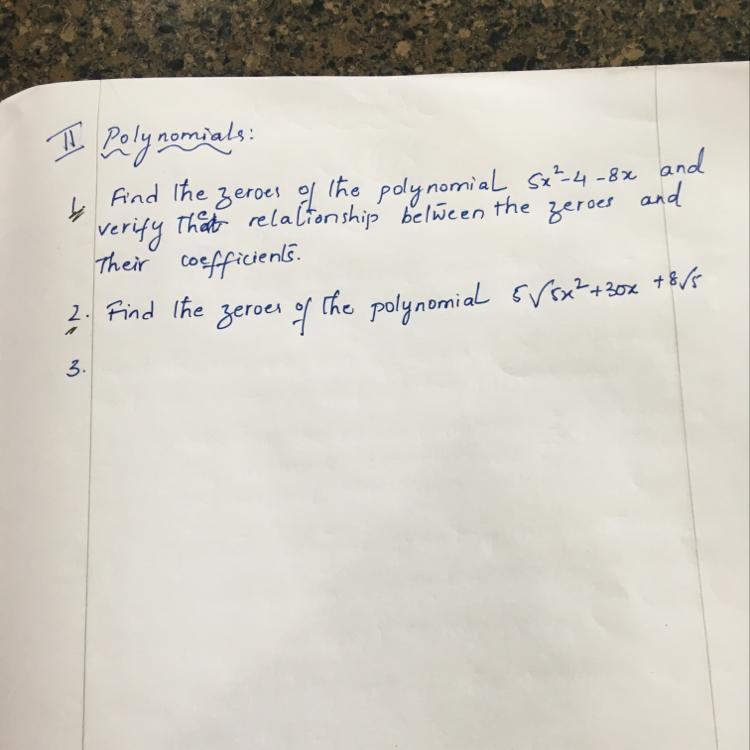 II Polynomials:
1. Find the zeroes of the polynomial 5x²-4-8x and
verify the relationship between the zeroes and
their coefficients.
2. Find the zeroes of the polynomial 5√5x²+30x+8√5
3.